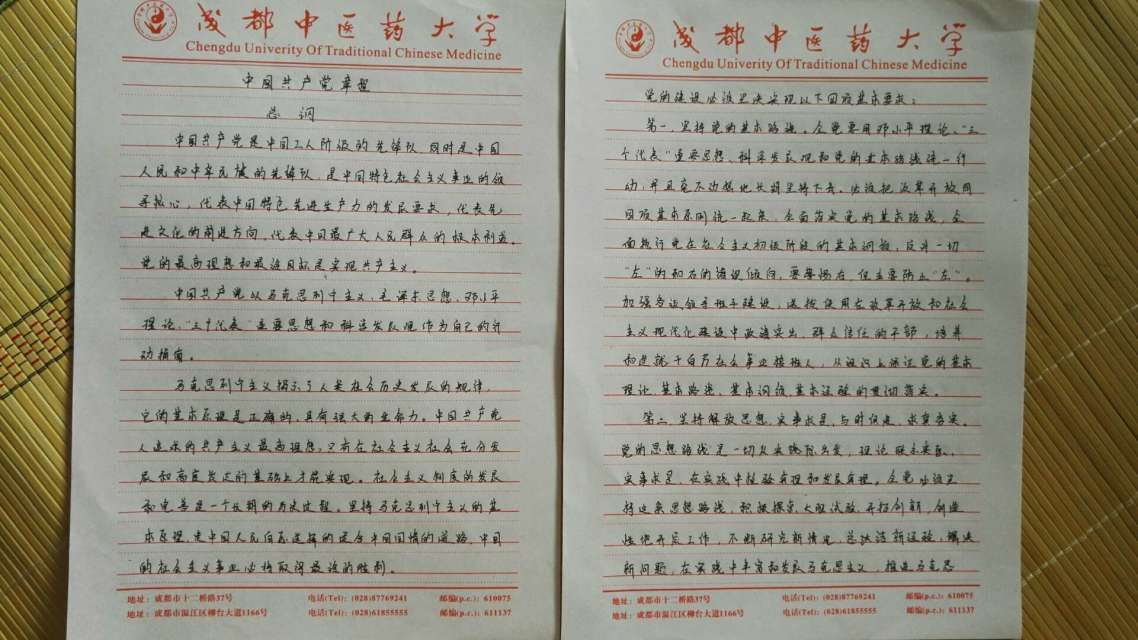 成都中医药大学
Chengdu Univerity Of Traditional Chinese Medicine
中国共产党章程
总纲
中国共产党是中国工人阶级的先锋队，同时是中国
人民和中华民族的先锋队，是中国特色社会主义事业的领
导核心，代表中国特色先进生产力的发展要求，代表先
进文化的前进方向，代表中国最广大人民群众的根本利益。
党的最高理想和最终目标是实现共产主义。
中国共产党以马克思列宁主义、毛泽东思想、邓小平
理论、“三个代表”重要思想和科学发展观作为自己的行
动指南。
马克思列宁主义揭示了人类社会历史发展的规律，
它的基本原理是正确的，具有强大的生命力。中国共产党
人追求的共产主义最高理想，只有在社会主义社会充分发
展和高度发达的基础上才能实现。社会主义制度的发展
和完善是一个长期的历史过程。坚持马克思列宁主义的基
本原理，走中国人民自愿选择的适合中国国情的道路，中国
的社会主义事业必将取得最终的胜利。
地址：成都市十二桥路37号 电话(Tel): (028)87769241 邮编(p.c.): 610075
地址：成都市温江区柳台大道1166号 电话(Tel): (028)61855555 邮编(p.c.): 611137
成都中医药大学
Chengdu Univerity Of Traditional Chinese Medicine
党的建设必须坚决实现以下四项基本要求：
第一，坚持党的基本路线。全党要用邓小平理论、“三
个代表”重要思想、科学发展观和党的基本路线统一行
动，并且毫不动摇地长期坚持下去。必须把改革开放同
四项基本原则统一起来，全面落实党的基本路线，全
面执行党在社会主义初级阶段的基本纲领，反对一切
“左”的和右的错误倾向，要警惕右，但主要防止“左”。
加强各级领导班子建设，选拔使用在改革开放和社会
主义现代化建设中政绩突出、群众信任的干部，培养
和造就千百万社会事业接班人，从组织上保证党的基本
理论、基本路线、基本纲领、基本经验的贯彻落实。
第二，坚持解放思想，实事求是，与时俱进，求真务实。
党的思想路线是一切从实际出发，理论联系实际，
实事求是，在实践中检验真理和发展真理。全党必须坚
持这条思想路线，积极探索，大胆试验，开拓创新，创造
性地开展工作，不断研究新情况，总结新经验，解决
新问题，在实践中丰富和发展马克思主义，推进马克思
地址：成都市十二桥路37号 电话(Tel): (028)87769241 邮编(p.c.): 610075
地址：成都市温江区柳台大道1166号 电话(Tel): (028)61855555 邮编(p.c.): 611137